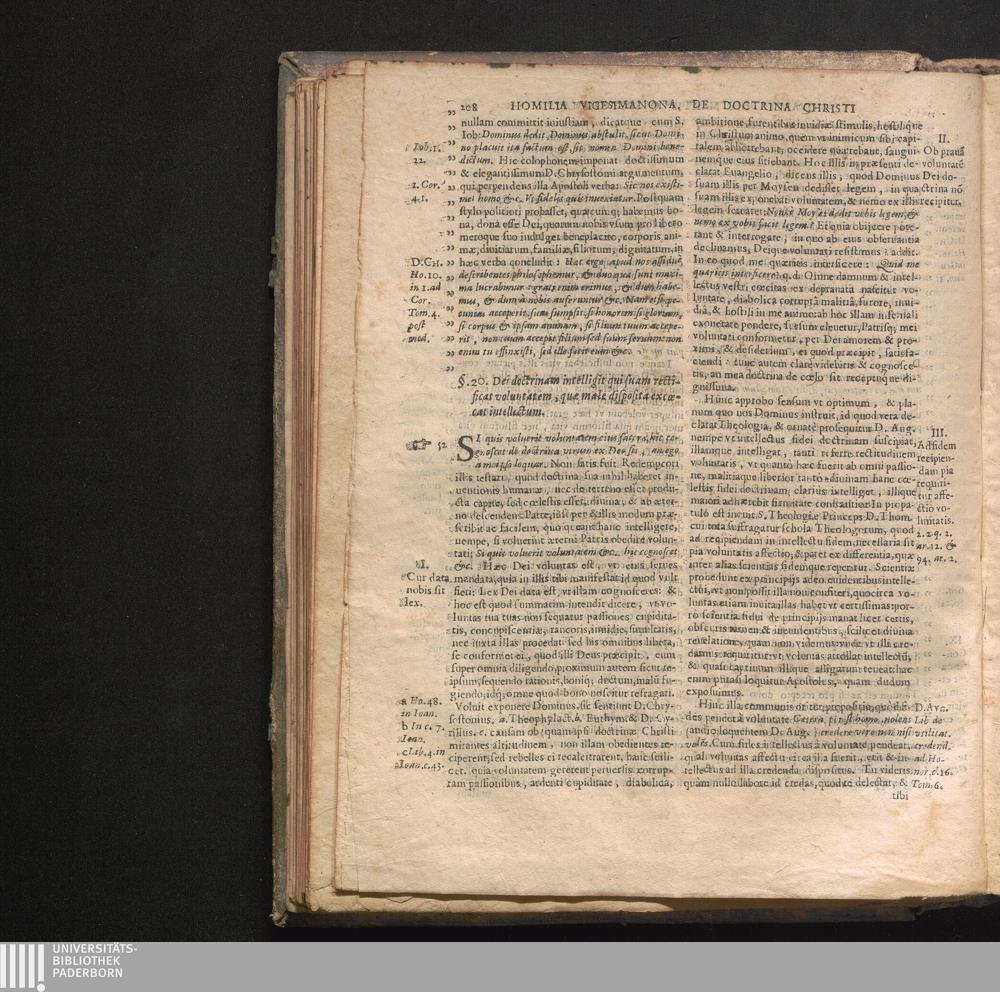 208 HOMILIA VIGESIMANONA, DE DOCTRINA CHRISTI
nullam committit iniustiam, dicatque cum S.
Iob: Dominus dedit, Dominus abstulit, sicut Domi-
no placuit ita factum est, sit nomen Domini bene-
dictum. Hic colophonem imponat doctissimum
& elegantissimum D. Chrysostomi argumentum,
qui perpendens illa Apostoli verba: Sic nos existi-
met homo &c. Vt fidelis quis inueniatur. Postquam
stylo politiori probasset, quæcunq; habemus bo-
na, dona esse Dei, quorum nobis vsum pro libero
meroque suo indulget beneplacito, corporis, ani-
mæ, diuitiarum, familiæ, filiorum, dignitatum, in
hæc verba concludit: Hæc ergo apud nos assiduè
describentes philosophemur, & duo quæ sunt maxi-
ma lucrabimur: grati enim erimus, & dum habe-
mus, & dum à nobis auferuntur &c. Nam etsi pe-
cuniam acceperit, suam sumpsit, si honorem, si gloriam,
si corpus & ipsam animam, si filium tuum accepe-
rit, non tuum accepit filium sed suum seruum: non
enim tu effinxisti, sed ille fecit eum &c.
§. 20. Dei doctrinam intelligit qui suam recti-
ficat voluntatem, quæ malè disposita excæ-
cat intellectum.
SI quis voluerit voluntatem eius facere, hic co-
gnoscet de doctrina vtrum ex Deo sit, an ego
à me ipso loquar. Non satis fuit Redemptori
illis testari, quòd doctrina sua nihil haberet in-
uentionis humanæ, nec de terreno esset produ-
cta capite, sed cœlestis esset, diuina, & ab æter-
no descendens Patre, nisi per & illis modum præ-
scribit ac facilem, quo queant hanc intelligere,
nempe, si voluerint æterni Patris obedire volun-
tati; Si quis voluerit voluntatem &c. hic cognoscet
&c. Hæc Dei voluntas est, vt eius serues
mandata, quia in illis tibi manifestat id quod vult
fieri: Lex Dei data est, vt illam cognosceres: &
hoc est quod summatim intendit dicere, vt vo-
luntas tua tuas non sequatur passiones cupidita-
tis, concupiscentiæ, rancoris, inuidiæ, simultatis,
nec iuxta illas procedat sed his omnibus libera,
se conformet ei, quod illi Deus præcipit, eum
super omnia diligendo, proximum autem sicut se-
ipsum, sequendo rationis, boniq; dictum, malū fu-
giendo, idq; omne quod bono noscitur refragari.
Voluit exponere Dominus, sic sentiunt D. Chry-
sostomus, a. Theophylact. b Euthym. & D. Cy-
rillus. c. causam ob quam ipsi doctrinæ Christi
mirantes altitudinem, non illam obedientes re-
ciperent, sed rebelles ei recalcitrarent, hanc scili-
cet, quia voluntatem gererent peruersis corrup-
tam passionibus, ardenti cupiditate, diabolica,
c Iob. 1.
22.
1. Cor.
4. 1.
D. CH.
Ho. 10.
in 1. ad
Cor.
Tom. 4.
post
med.
52
I.
Cur data
nobis sit
lex.
a Ho. 48.
in Ioan.
b In c. 7.
Ioan.
c Lib. 4. in
Ioan. c. 43.
ambitione, furentibus inuidiæ stimulis, hostilique
in Christum animo, quem vt inimicum sibi capi-
talem abhorrebant, occidere quærebant, sangui-
nemque eius sitiebant. Hoc illis in præsenti de-
clarat Euangelio, dicens illis, quod Dominus
suam illis per Moysen dedisset legem, in qua
suam illis exponebat voluntatem, & nemo ex illis
legem seruaret: Nonne Moyses dedit vobis legem, &
nemo ex vobis facit legem? Et quia obijcere pote-
rant & interrogare, in quo ab eius obseruantia
declinamus, Deique voluntati resistimus? addit.
In eo quod me quæritis interficere: Quid me
quæritis interficere? q. d. Omne damnum & intel-
lectus vestri cæcitas ex deprauata nascitur vo-
luntate, diabolica corruptâ malitiâ, furore, inui-
diâ, & hostili in me animo: ab hoc illam infernali
exonerate pondere, sursum eleuetur, Patrisq; mei
voluntati conformetur, per Dei amorem & pro-
ximi, & desiderium, ei quod præcipit, satisfa-
ciendi: tunc autem clarè videbitis & cognosce-
tis, an mea doctrina de cœlo sit receptuque di-
gnissima.
Hunc approbo sensum vt optimum, & pla-
num quo nos Dominus instruit, id quod vera de-
clarat Theologia, & ornatè prosequitur D. Aug.
nempe vt intellectus fidei doctrinam suscipiat,
illamque intelligat, tanti referre rectitudinem
voluntatis, vt quanto hæc fuerit ab omni passio-
ne, malitiaque liberior tanto diuinam hanc cœ-
lestis fidei doctrinam; clarius intelliget, illique
maiori adhærebit firmitate constantiæ: In propa-
tulo est inquit S. Theologiæ Princeps D. Thom.
cui tota suffragatur schola Theologorum, quod
ad recipiendam in intellectu fidem, necessaria sit
pia voluntatis affectio, & patet ex differentia, quæ
inter alias scientias fidemque reperitur. Scientiæ
procedunt ex principijs adeo euidentibus intelle-
ctui, vt non possit illa non confiteri, quocirca vo-
luntas etiam inuita illas habet vt certissimas: por-
ro scientia fidei de principijs manat licet certis,
obscuris tamen & ineuidentibus, scilicet diuina
reuelatione, quam non videmus: vnde vt illi cre-
damus requiritur vt voluntas attollat intellectū,
& quasi captiuum illique alligatum teneat: hæc
enim plura: loquitur Apostolus, quam dudum
exposuimus.
Hinc illa communis oritur propositio, quòd fi-
des pendeat à voluntate. Cætera potest homo nolens
(audio loquentem D. Aug.) credere vero non nisi
volēs. Cum fides intellectus à voluntate pendeat,
qual voluntas affectu circa illa fuerit, erit & in-
tellectus ad illa credenda dispositus. Tu videris
quàm nullo labore id credas, quod te delectat, &
tibi
II.
Ob prauā
voluntatē
Dei do-
ctrina nō
recipitur.
III.
Ad fidem
recipien-
dam pia
requiri-
tur affe-
ctio vo-
luntatis.
2. 2. q. 2.
ar. 12. &
94. ar. 2.
D. AVG.
Lib de
vtilitat.
credend.
ad Ho-
nor. c. 16.
Tom. 6.
UNIVERSITÄTS-
BIBLIOTHEK
PADERBORN